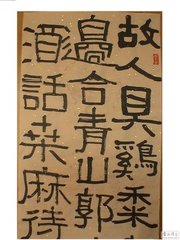 故人具鷄黍
邊合青山郭
酒話桒麻待